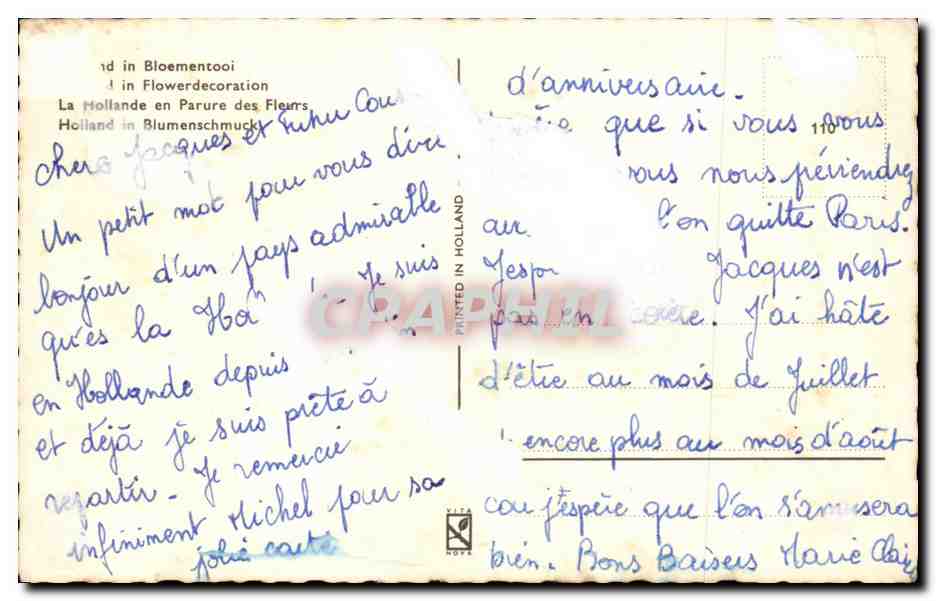 nd in Bloementooi
d in Flowerdecoration
La Hollande en Parure des Fleurs
Holland in Blumenschmuck
chers Jacques et Futur Cous
Un petit mot pour vous dire
bonjour d'un pays admirable
qu'es la Hol Je suis
en Hollande depuis
et déjà je suis prête à
repartir - Je remercie
infiniment Michel pour sa
jolie carte
PRINTED IN HOLLAND
VITA
NOVA
110
d'anniversaire.
que si vous vous
vous nous préviendrez
car l'on quitte Paris.
J'espè Jacques n'est
pas en colère. J'ai hâte
d'être au mois de Juillet
encore plus au mois d'août
car j'espère que l'on s'amusera
bien. Bons Baisers Marie Clair
CPAPHIL